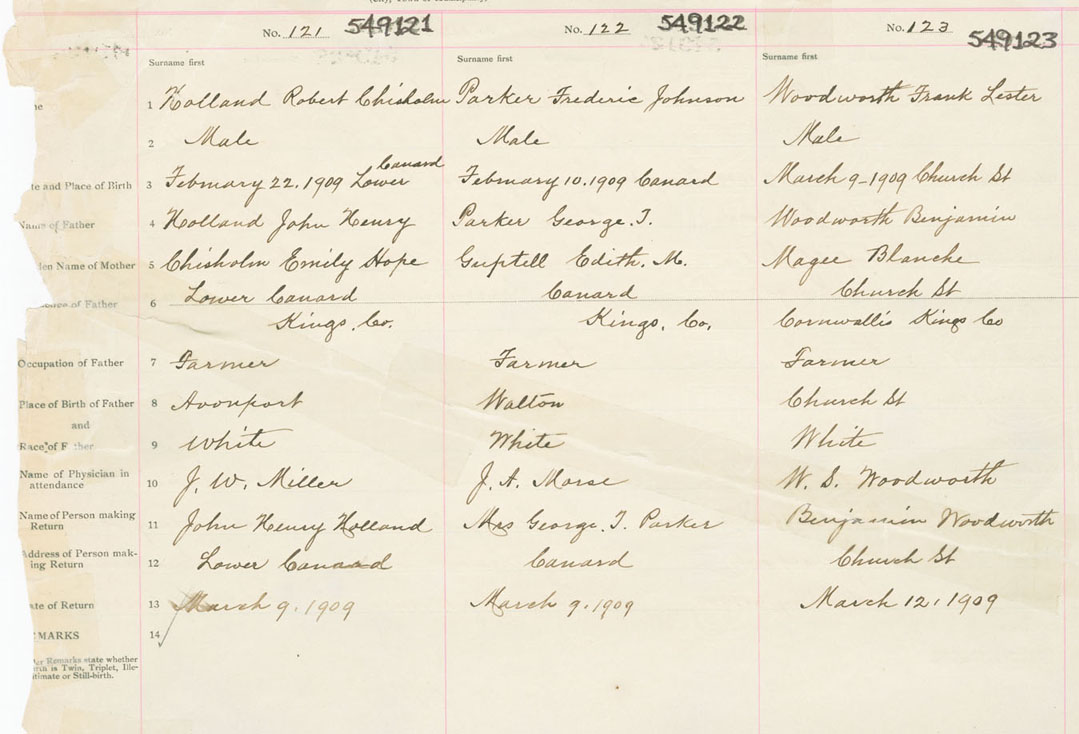 No. 121 549121
No. 122 549122
No. 123 549123
Surname first
Surname first
Surname first
1 Holland Robert Chisholm Parker Frederic Johnson Woodworth Frank Lester
2 Male Male Male
Canard
te and Place of Birth 3 February 22. 1909 Lower February 10. 1909 Canard March 9-1909 Church St
Name of Father 4 Holland John Henry Parker George. T. Woodworth Benjamin
den Name of Mother 5 Chisholm Emily Hope Guptell Edith. M. Magee Blanche
of Father 6 Lower Canard Canard Church St
Kings. Co. Kings, Co. Cornwallis Kings Co
Occupation of Father 7 Farmer Farmer Farmer
Place of Birth of Father 8 Avonport Walton Church St
and
Race of F ther 9 White White White
Name of Physician in
attendance 10 J. W. Miller J. A. Morse W. S. Woodworth
Name of Person making
Return 11 John Henry Holland Mrs George. T. Parker Benjamin Woodworth
Address of Person mak-
ing Return 12 Lower Canard Canard Church St
te of Return 13 March 9. 1909 March 9. 1909 March 12. 1909
MARKS 14
er Remarks state whether
is Twin, Triplet, Ille-
itimate or Still-birth.